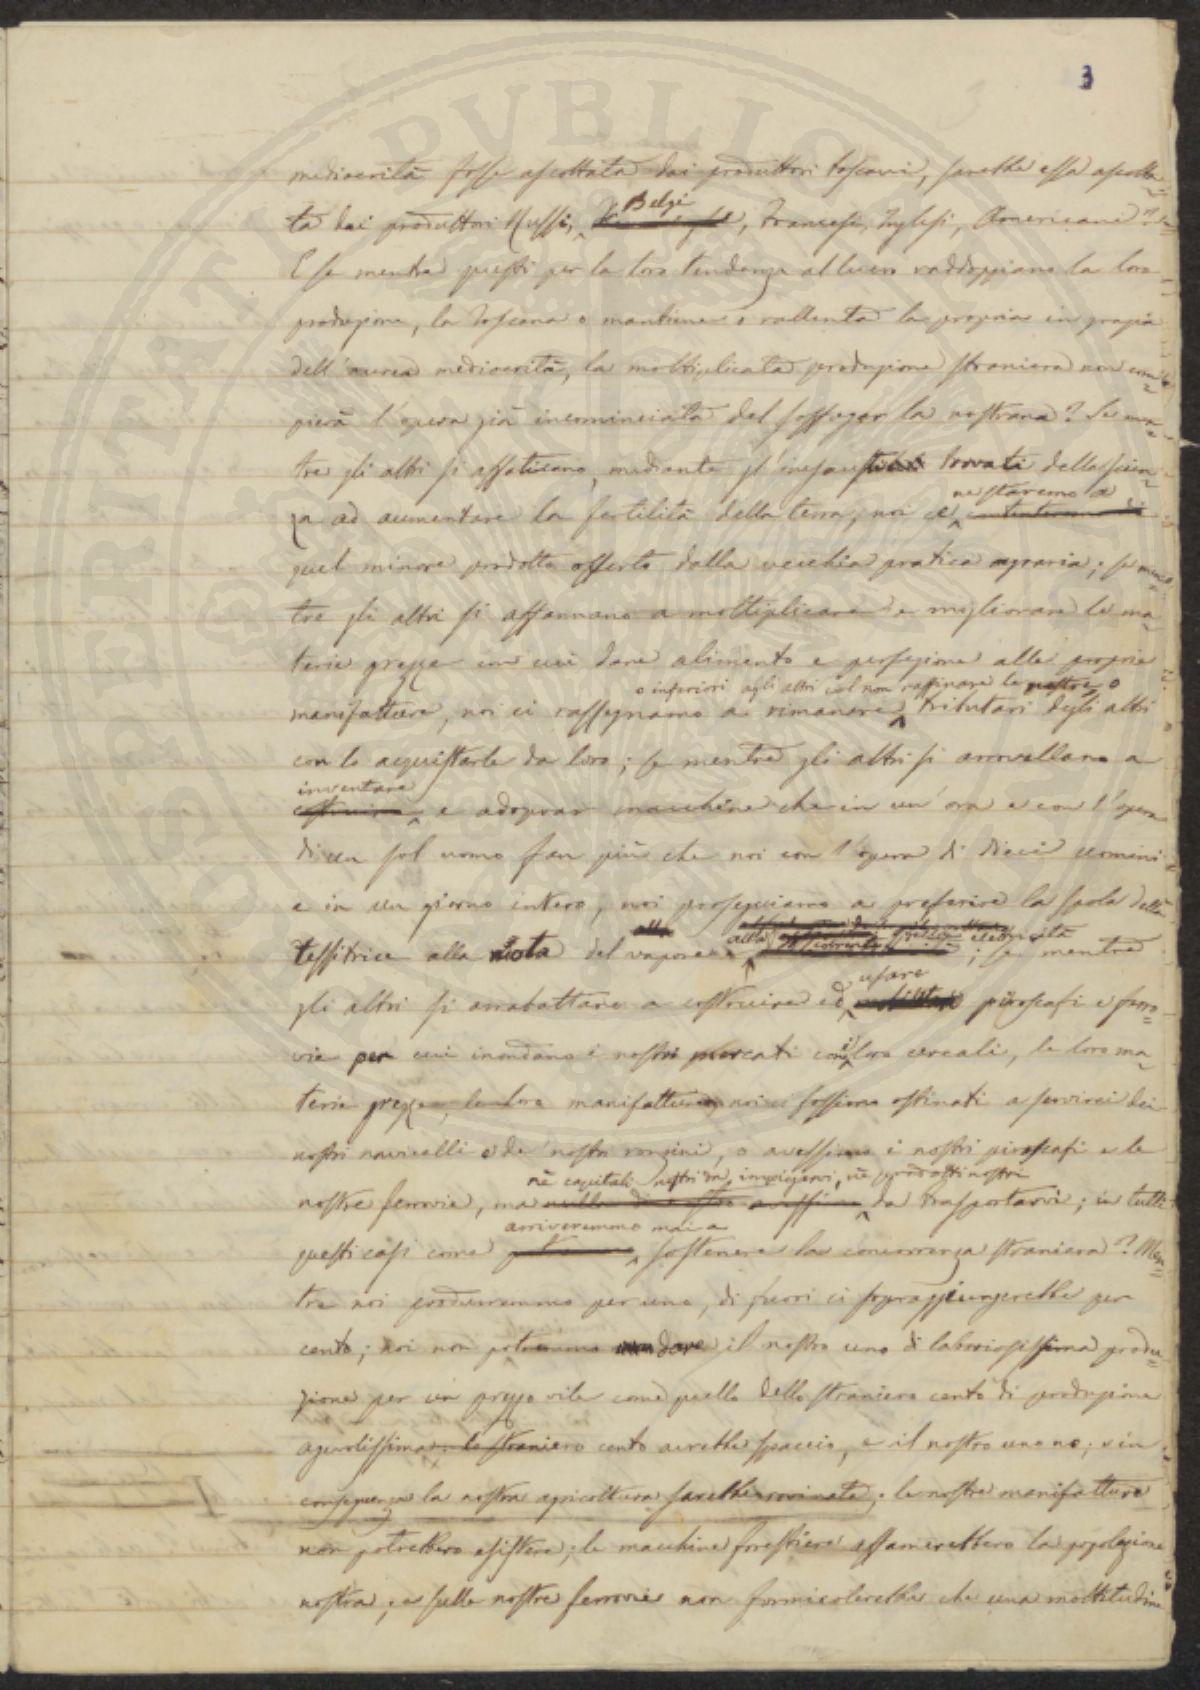 3
mediocrità fosse ascoltata dai produttori toscani, sarebbe essa ascolta=
ta dai produttori Russi, Belgi, Francesi, Inglesi, Americani?
E se mentre questi per la loro tendenza al lucro raddoppiano la loro
produzione, la Toscana o mantiene o rallenta la propria in grazia
dell'aurea mediocrità, la moltiplicata produzione straniera non com=
pierà l'opera già incominciata del soffogar la nostrana? Se men=
tre gli altri si affaticano, mediante gl'inesausti trovati della scien=
za ad aumentare la fertilità della terra, noi ce ne staremo a
quel minore prodotto offerto dalla vecchia pratica agraria; se men=
tre gli altri si affannano a moltiplicare e migliorare le ma=
terie grezze con cui dare alimento e perfezione alle proprie
o inferiori agli altri col non raffinare le nostre o
manifatture, noi ci rassegnamo a rimanere tributari degli altri
con lo acquistarle da loro; se mentre gli altri si arrovellano a
inventare
costruire e adoprar macchine che in un'ora e con l'opera
di un sol uomo fan più che noi con l'opera di dieci uomini
e in un giorno intero, noi proseguiamo a preferire la spola della
tessitrice alla ruota del vapore alla elettricità; se mentre
usare
gli altri si arrabattano a costruire ed piroscafi e ferro=
vie per cui inondano i nostri mercati con i loro cereali, le loro ma=
terie grezze, le loro manifatture, noi ci fossimo ostinati a servirci dei
nostri navicelli e de' nostri ronzini, o avessimo i nostri piroscafi e le
nè capitali nostri da impiegarvi, nè prodotti nostri
nostre ferrovie, ma nulla di nostro avessimo da trasportarvi; in tutti
arriveremmo mai a
questi casi come sostenere la concorrenza straniera? Men=
tre noi produrremmo per uno, di fuori ci sopraggiungerebbe per
cento; noi non potremmo dare il nostro uno di laboriosissima produ=
zione per un prezzo vile come quello dello straniero cento di produzione
agevolissima: lo straniero cento avrebbe spaccio, e il nostro uno no; e in
conseguenza la nostra agricoltura sarebbe rovinata; le nostre manifatture
non potrebbero esistere; le macchine forestiere affamerebbero la popolazione
nostra; e sulle nostre ferrovie non formicolerebbe che una moltitudine